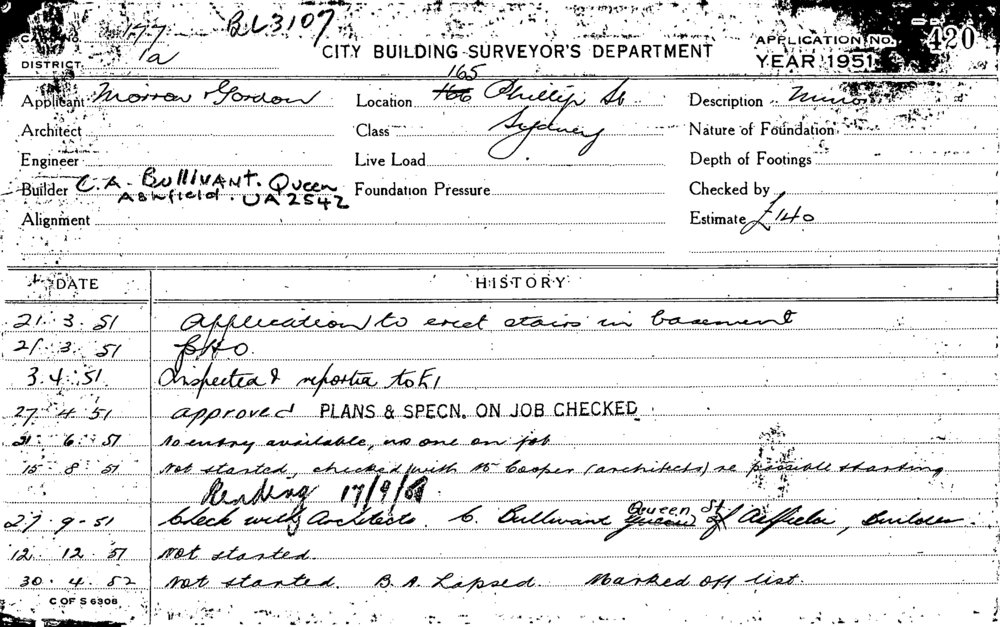 BL3107
CARD No. 177
CITY BUILDING SURVEYOR'S DEPARTMENT
APPLICATION No. 420
DISTRICT 1a
YEAR 1951
Applicant Morrow & Gordon
Location 166 165 Phillip St
Sydney
Description
Architect
Class
Nature of Foundation
Engineer
Live Load
Depth of Footings
Builder C. A. BULLIVANT. QUEEN
ASHFIELD. UA2542
Foundation Pressure
Checked by
Alignment
Estimate £140
DATE HISTORY
21. 3. 51 Application to erect stairs in basement
21. 3. 51
3. 4. 51 Inspected & reported to
27 4 51 approved PLANS & SPECN. ON JOB CHECKED
21 6 51 No entry available, no one on job
15 8 51 Not started, checked with Mr Cooper (architects) re possible starting
Pending 17/9/51
27. 9. 51 Check with Architects. C. Bullivant Queen St Ashfield, Builder.
12. 12. 51 Not started.
30. 4. 52 Not started. B.A. Lapsed. Marked off list.
C OF S 6308